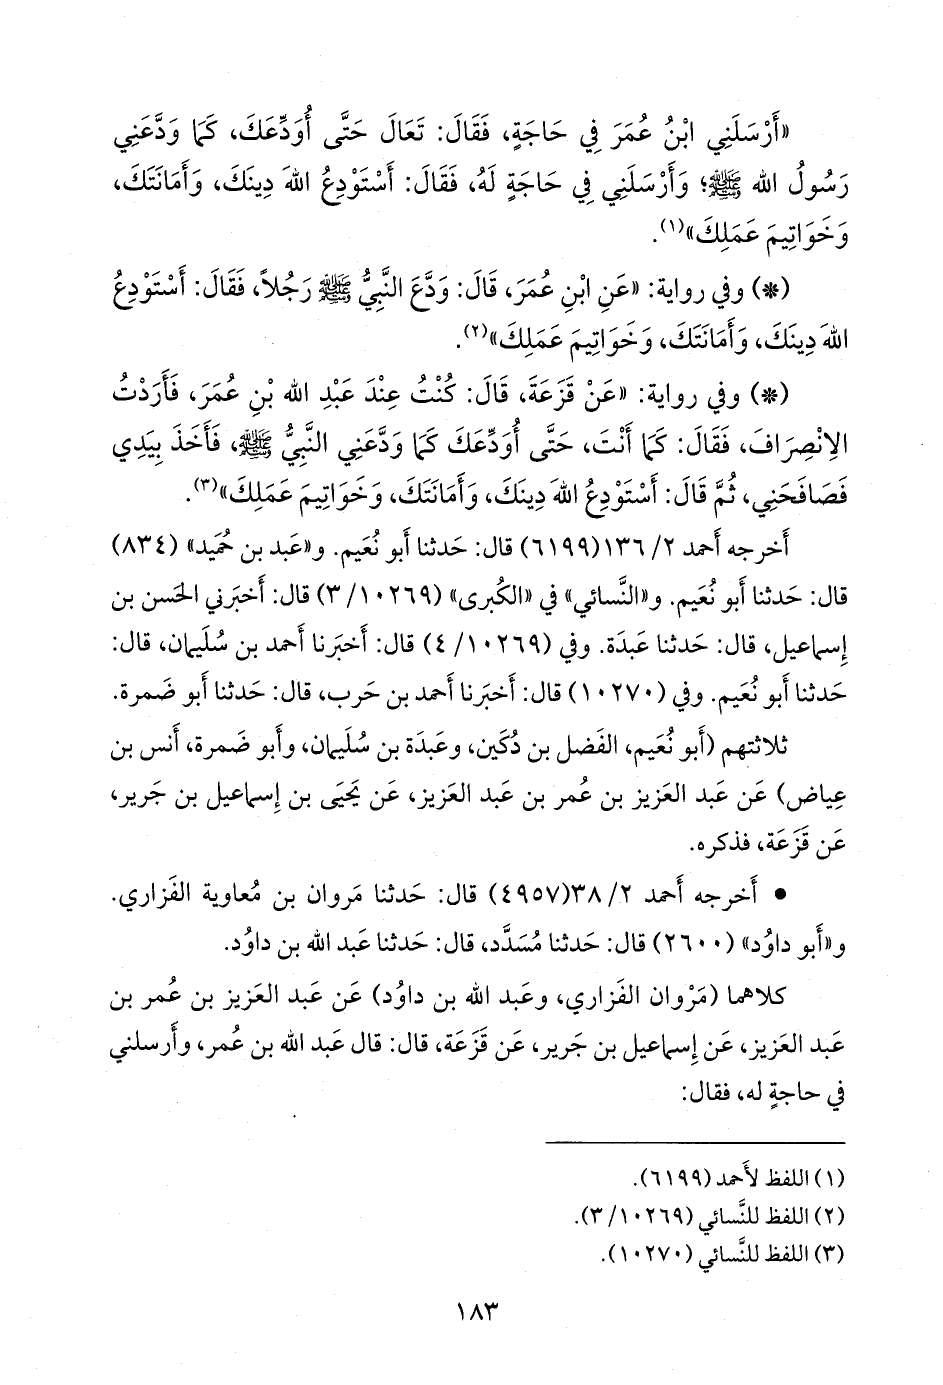 «أَرْسَلَنِي ابْنُ عُمَرَ فِي حَاجَةٍ، فَقَالَ: تَعَالَ حَتَّى أُوَدِّعَكَ، كَمَا وَدَّعَنِي
رَسُولُ الله ﷺ؛ وَأَرْسَلَنِي فِي حَاجَةٍ لَهُ، فَقَالَ: أَسْتَوْدِعُ اللهَ دِينَكَ، وَأَمَانَتَكَ،
وَخَوَاتِيمَ عَمَلِكَ»(١).
(*) وفي رواية: «عَنِ ابْنِ عُمَرَ، قَالَ: وَدَّعَ النَّبِيُّ ﷺ رَجُلاً، فَقَالَ: أَسْتَوْدِعُ
اللهَ دِينَكَ، وَأَمَانَتَكَ، وَخَوَاتِيمَ عَمَلِكَ»(٢).
(*) وفي رواية: «عَنْ قَزَعَةَ، قَالَ: كُنْتُ عِنْدَ عَبْدِ الله بْنِ عُمَرَ، فَأَرَدْتُ
الاِنْصِرَافَ، فَقَالَ: كَمَا أَنْتَ، حَتَّى أُوَدِّعَكَ كَمَا وَدَّعَنِي النَّبِيُّ ﷺ، فَأَخَذَ بِيَدِي
فَصَافَحَنِي، ثُمَّ قَالَ: أَسْتَوْدِعُ اللهَ دِينَكَ، وَأَمَانَتَكَ، وَخَوَاتِيمَ عَمَلِكَ»(٣).
أَخرجه أَحمد ٢/ ١٣٦(٦١٩٩) قال: حَدثنا أَبو نُعَيم. و«عَبد بن حُميد» (٨٣٤)
قال: حَدثنا أَبو نُعَيم. و«النَّسائي» في «الكُبرى» (١٠٢٦٩/ ٣) قال: أَخبَرني الحَسن بن
إِسماعيل، قال: حَدثنا عَبدَة. وفي (١٠٢٦٩/ ٤) قال: أَخبَرنا أَحمد بن سُلَيمان، قال:
حَدثنا أَبو نُعَيم. وفي (١٠٢٧٠) قال: أَخبَرنا أَحمد بن حَرب، قال: حَدثنا أَبو ضَمرة.
ثلاثتهم (أَبو نُعَيم، الفَضل بن دُكَين، وعَبدَة بن سُلَيمان، وأَبو ضَمرة، أَنس بن
عِياض) عَن عَبد العَزيز بن عُمر بن عَبد العَزيز، عَن يَحيَى بن إِسماعيل بن جَرير،
عَن قَزَعَة، فذكره.
• أَخرجه أَحمد ٢/ ٣٨(٤٩٥٧) قال: حَدثنا مَروان بن مُعاوية الفَزاري.
و«أَبو داوُد» (٢٦٠٠) قال: حَدثنا مُسَدَّد، قال: حَدثنا عَبد الله بن داوُد.
كلاهما (مَرْوان الفَزاري، وعَبد الله بن داوُد) عَن عَبد العَزيز بن عُمر بن
عَبد العَزيز، عَن إِسماعيل بن جَرير، عَن قَزَعَة، قال: قال عَبد الله بن عُمر، وأَرسلني
في حاجةٍ له، فقال:
(١) اللفظ لأَحمد (٦١٩٩).
(٢) اللفظ للنَّسائي (١٠٢٦٩/ ٣).
(٣) اللفظ للنَّسائي (١٠٢٧٠).
١٨٣